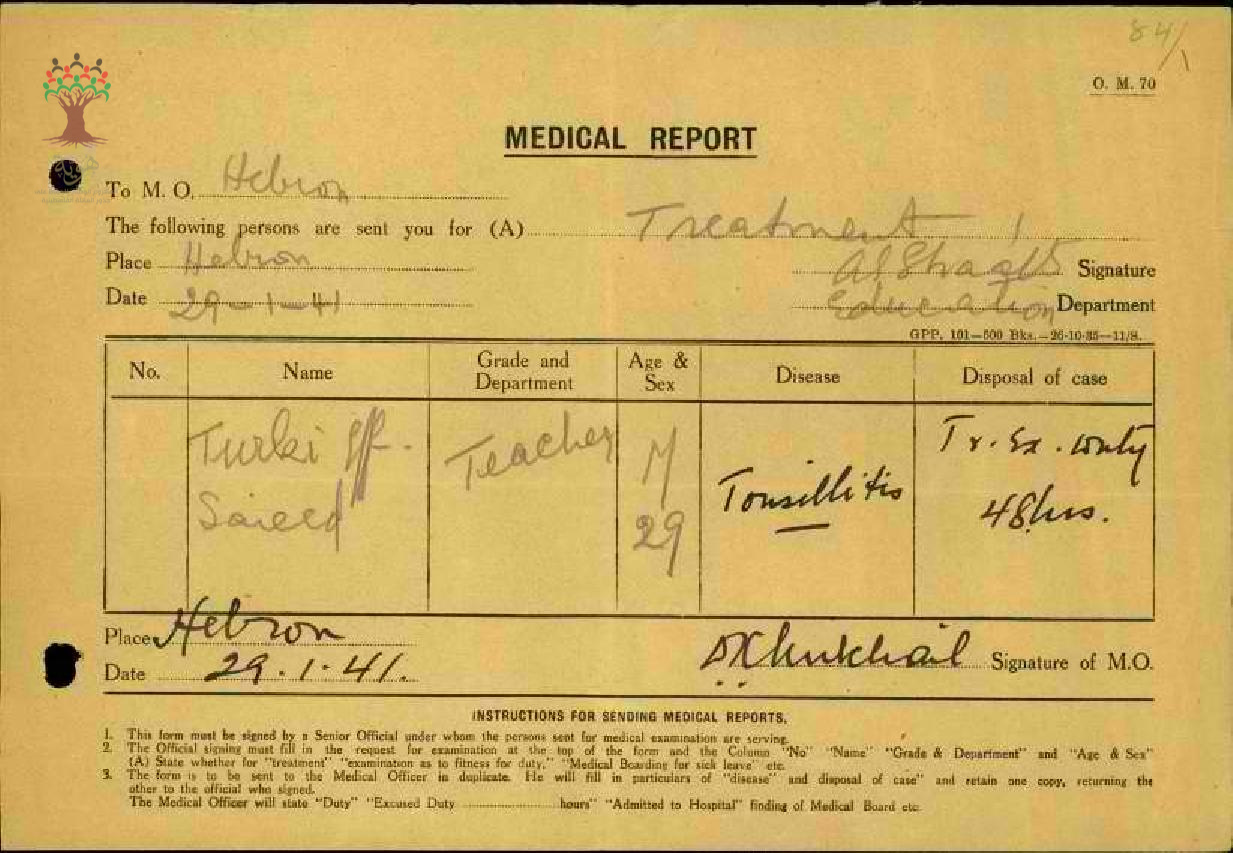 84/1
O. M. 70
MEDICAL REPORT
To M. O. Hebron
The following persons are sent you for (A) Treatment
Place Hebron
Signature
Date 29-1-41
Education Department
GPP. 101—500 Bks.—26-10-35—11/8.
No. Name Grade and Department Age & Sex Disease Disposal of case
Turki eff. Teacher M Tonsillitis Tr. Ex. Duty
Saieed 29 48 hrs.
Place Hebron
Date 29.1.41. Signature of M.O.
INSTRUCTIONS FOR SENDING MEDICAL REPORTS.
1. This form must be signed by a Senior Official under whom the persons sent for medical examination are serving.
2. The Official signing must fill in the request for examination at the top of the form and the Column "No" "Name" "Grade & Department" and "Age & Sex"
(A) State whether for "treatment" "examination as to fitness for duty," "Medical Boarding for sick leave" etc.
3. The form is to be sent to the Medical Officer in duplicate. He will fill in particulars of "disease" and disposal of case" and retain one copy, returning the
other to the official who signed.
The Medical Officer will state "Duty" "Excused Duty ........................hours" "Admitted to Hospital" finding of Medical Board etc.